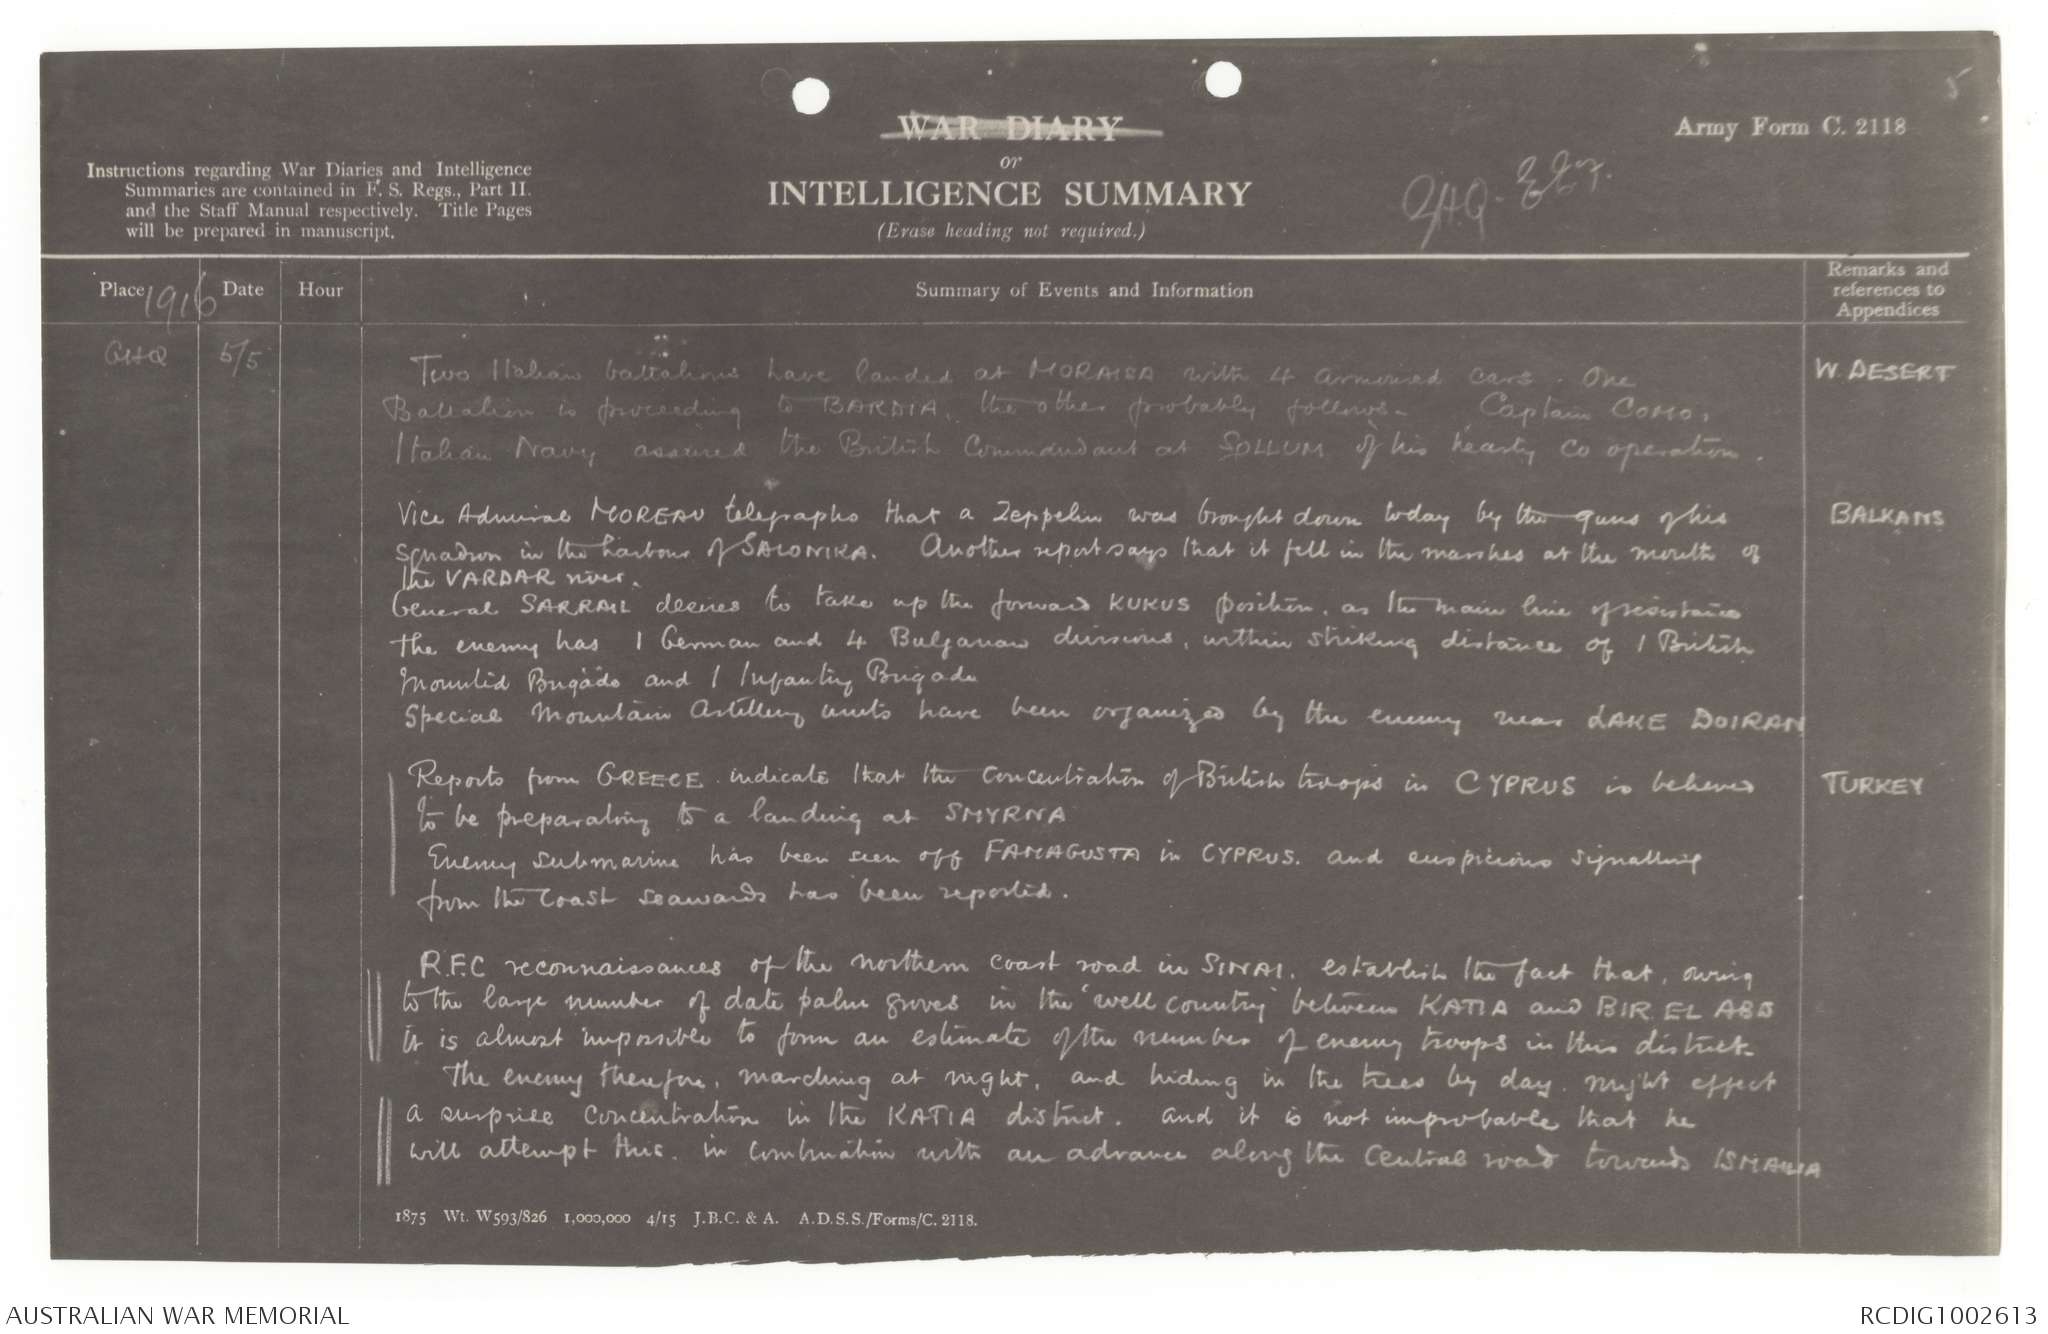 5
WAR DIARY
or
INTELLIGENCE SUMMARY
(Erase heading not required.)
Army Form C. 2118
GHQ. EEF.
Instructions regarding War Diaries and Intelligence
Summaries are contained in F. S. Regs., Part II.
and the Staff Manual respectively. Title Pages
will be prepared in manuscript.
Place
1916
Date
Hour
Summary of Events and Information
Remarks and
references to
Appendices
GHQ
5/5
Two Italian battalions have landed at MORAISA with 4 armoured cars. One
Battalion is proceeding to BARDIA, the other probably follows. Captain COMO,
Italian Navy assured the British Commandant at SOLLUM of his hearty co operation.
W. DESERT
Vice Admiral MOREAU telegraphs that a Zeppelin was brought down today by the guns of his
squadron in the harbour of SALONIKA. Another report says that it fell in the marshes at the mouth of
the VARDAR river.
BALKANS
General SARRAIL desires to take up the forward KUKUS position, as the main line of resistance
the enemy has 1 German and 4 Bulgarian divisions, within striking distance of 1 British
Mounted Brigade and 1 Infantry Brigade
Special Mountain Artillery units have been organized by the enemy near LAKE DOIRAN
Reports from GREECE indicate that the concentration of British troops in CYPRUS is believed
to be preparatory to a landing at SMYRNA
TURKEY
Enemy submarine has been seen off FAMAGUSTA in CYPRUS. and suspicious signalling
from the coast seawards has been reported.
R.F.C reconnaissances of the northern coast road in SINAI, establish the fact that, owing
to the large number of date palm groves in the 'well country' between KATIA and BIR EL ABD
it is almost impossible to form an estimate of the number of enemy troops in this district.
The enemy therefore, marching at night, and hiding in the trees by day. might effect
a surprise concentration in the KATIA district. and it is not improbable that he
will attempt this. in combination with an advance along the Central road towards ISMAILIA
1875 Wt. W593/826 1,000,000 4/15 J.B.C. & A. A.D.S.S./Forms/C. 2118.
AUSTRALIAN WAR MEMORIAL
RCDIG1002613